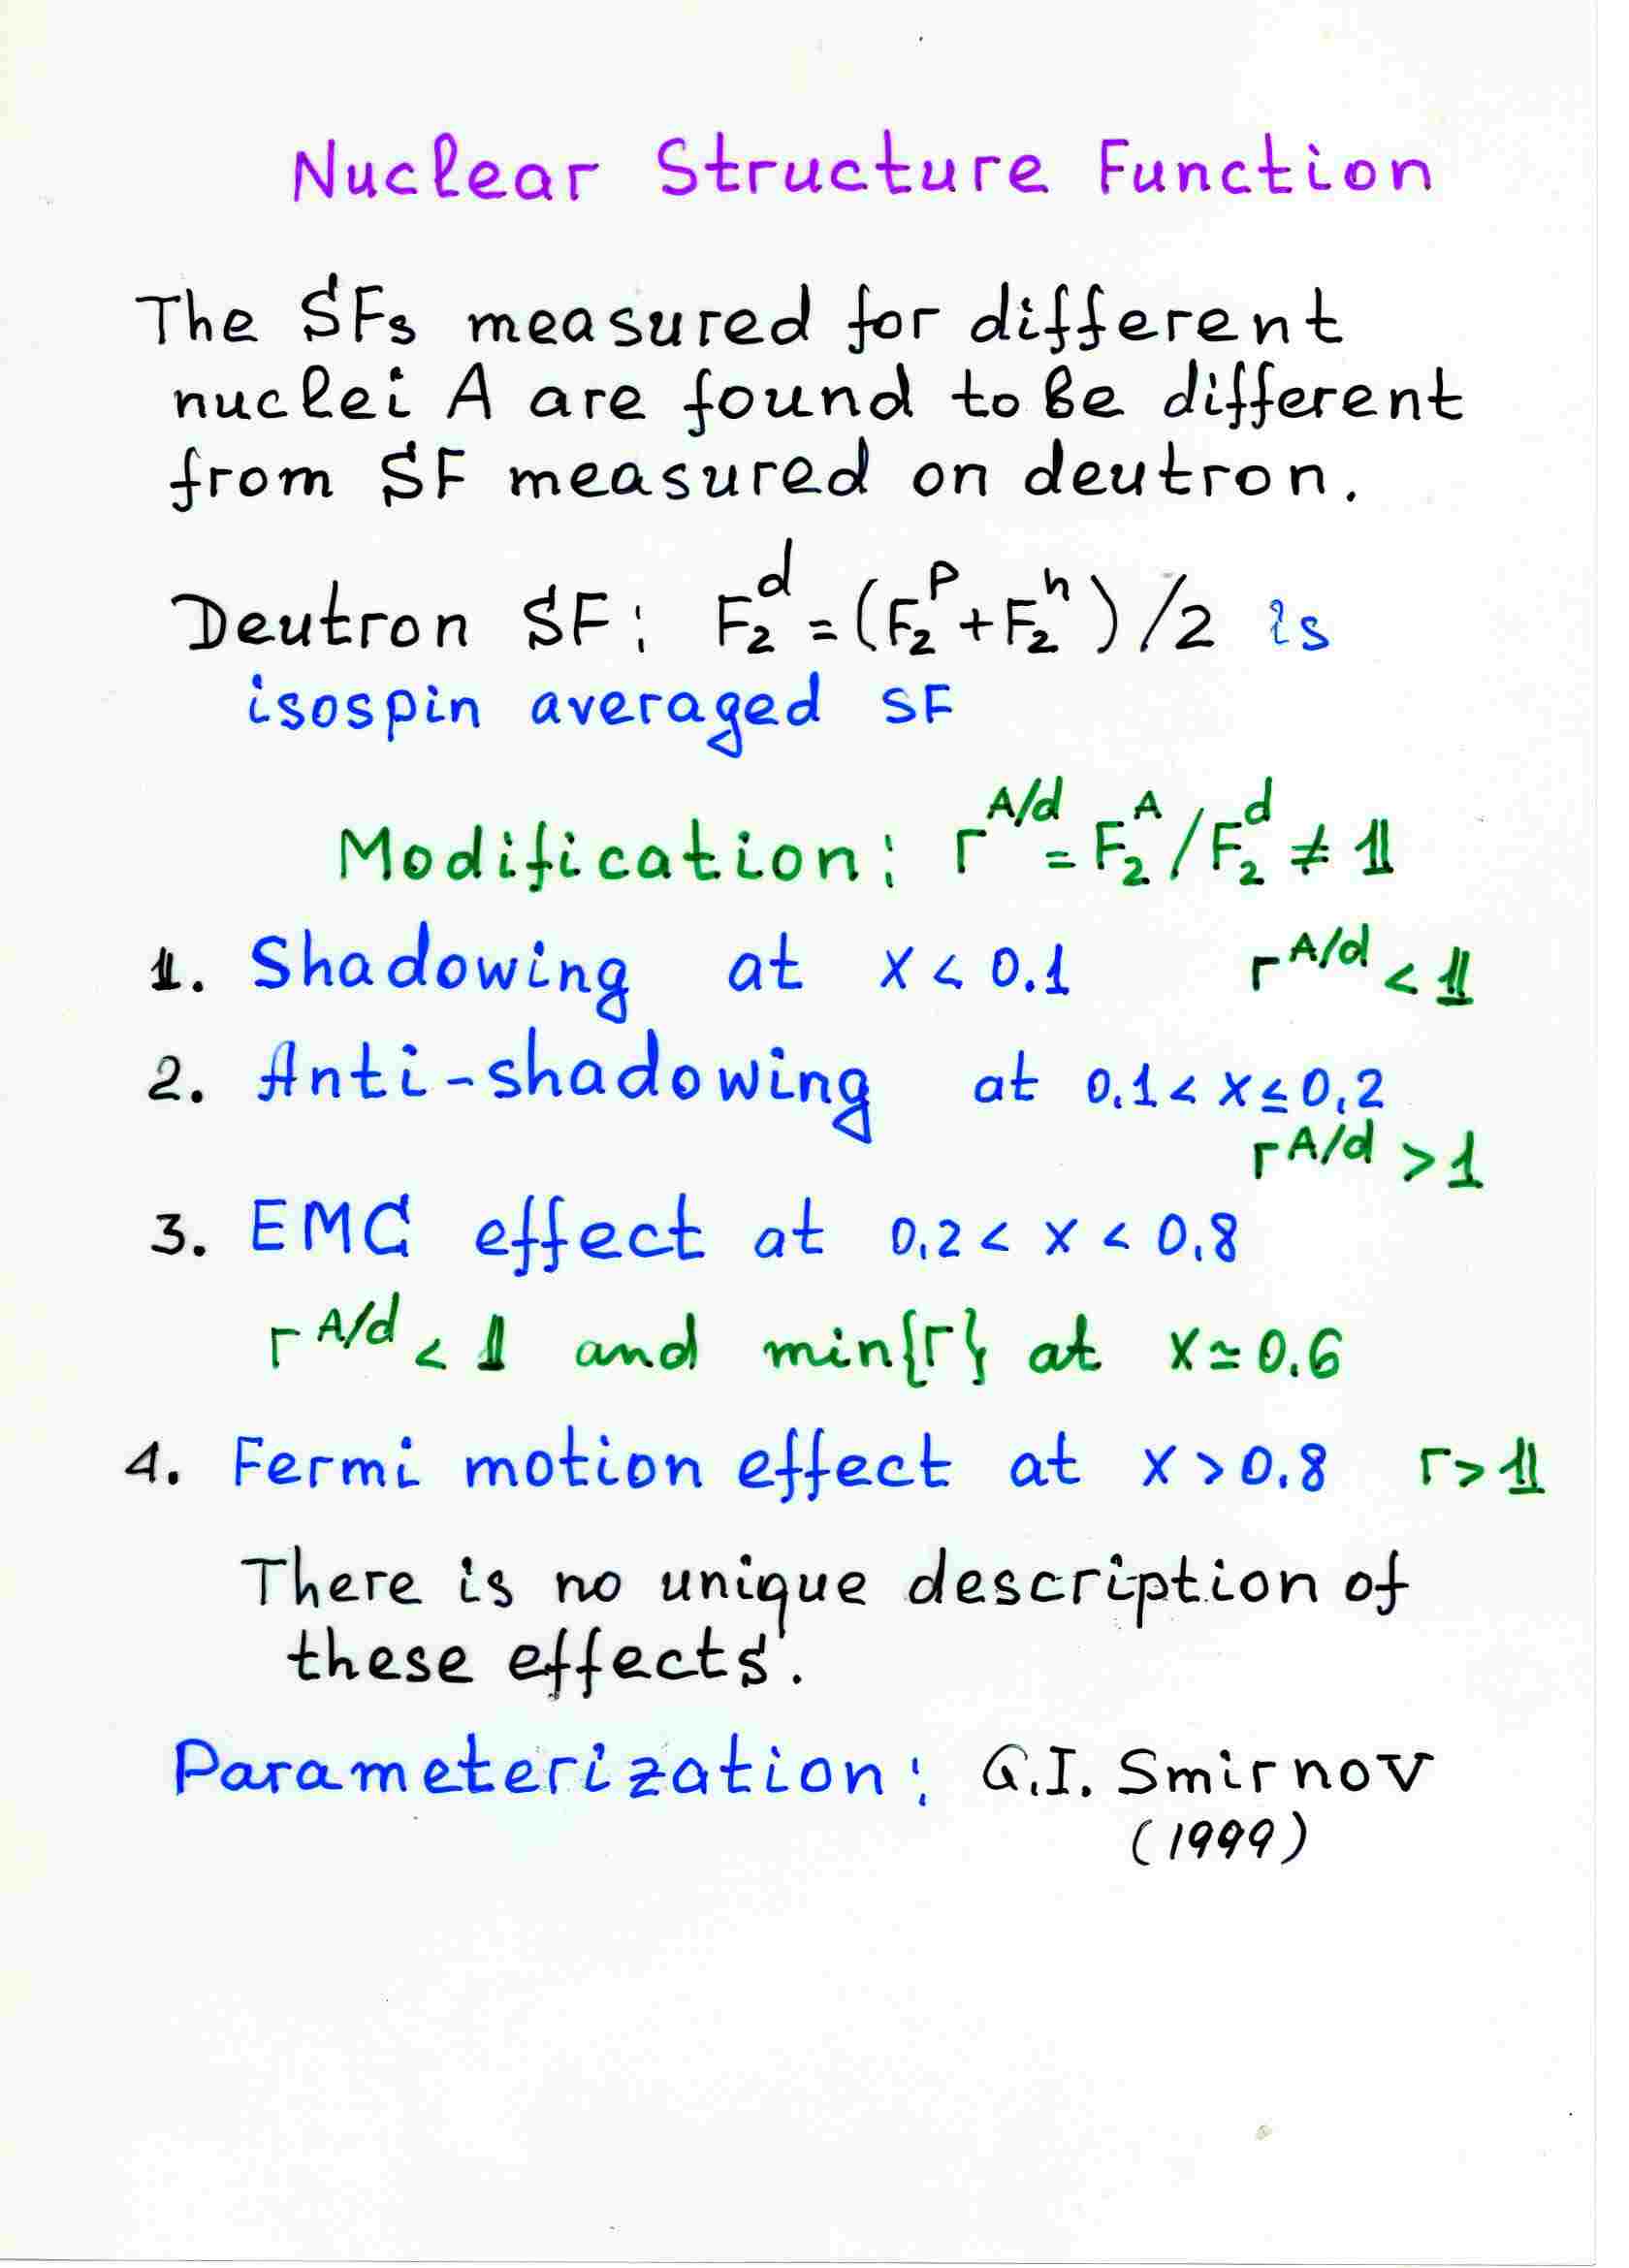 Nuclear Structure Function
The SFs measured for different
nuclei A are found to be different
from SF measured on deutron.
Deutron SF: F₂ᵈ = (F₂ᵖ + F₂ⁿ) / 2 is
isospin averaged SF
Modification: r^A/d = F₂^A / F₂^d ≠ 1
1. Shadowing at x < 0.1 r^A/d < 1
2. Anti-shadowing at 0.1 < x ≤ 0.2
r^A/d > 1
3. EMC effect at 0.2 < x < 0.8
r^A/d < 1 and min{r} at x ≃ 0.6
4. Fermi motion effect at x > 0.8 r > 1
There is no unique description of
these effects.
Parameterization: G.I. Smirnov
(1999)